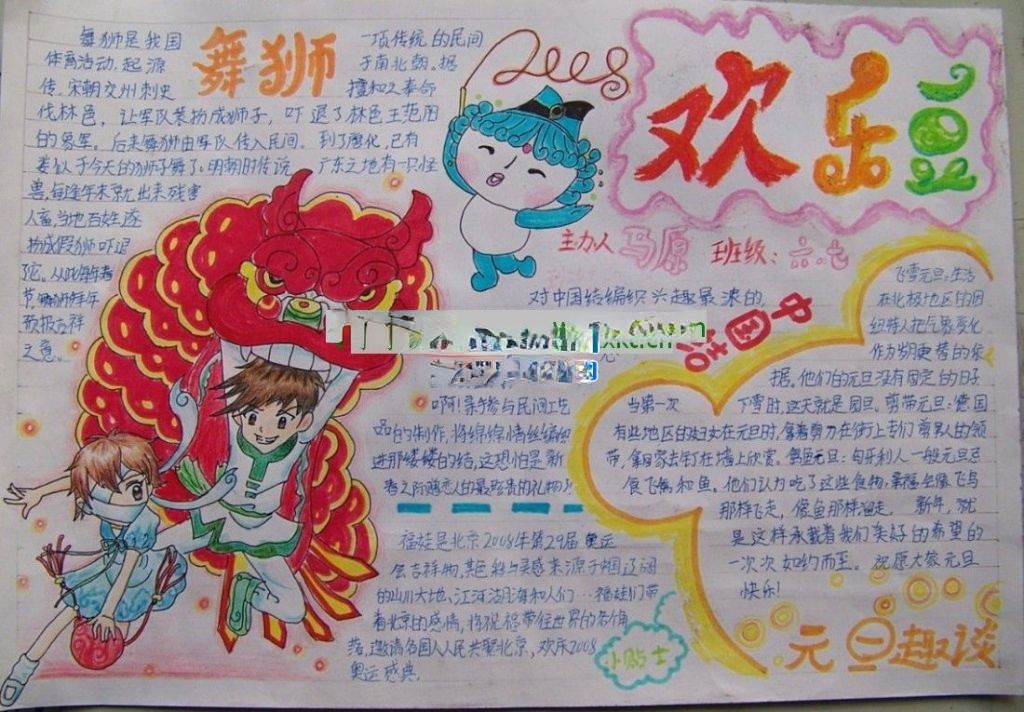 舞狮
舞狮是我国
一项传统的民间
体育活动。起源
于南北朝。据
传,宋朝交州刺史
檀和之奉命
伐林邑,让军队装扮成狮子,吓退了林邑王范阳
的象军。后来舞狮由军队传入民间。到了唐代,已有
类似于今天的狮子舞了。明朝时传说广东之地有一只怪
兽,每逢年末就出来残害
人畜,当地百姓遂
扮成假狮吓退
节,舞狮拜年
预报吉祥
之意。
2008
欢乐
主办人 马原 班级:六.七
中国结
对中国结编织兴趣最浓的,
啊!亲手参与民间工艺
品的制作,将绵绵情丝编织
进那缕缕的结,这恐怕是新
福娃是北京2008年第29届奥运
会吉祥物,其色彩与灵感来源于中国辽阔
的山川大地、江河湖海和人们…福娃们带
着北京的感情,将祝福带往世界的各个角
落,邀请各国人民共聚北京,欢庆2008
奥运盛典.
小贴士
飞雪元旦:生活
在北极地区的因
纽特人把气象变化
作为岁月更替的依
据。他们的元旦没有固定的日子
当第一次下雪时,这天就是元旦。剪带元旦:德国
有些地区的妇女在元旦时,拿着剪刀在街上专门剪男人的领
带,拿回家去钉在墙上欣赏。禽鱼元旦:匈牙利人一般元旦忌
食飞禽和鱼。他们认为吃了这些食物,幸福会像飞鸟
那样飞走,像鱼那样溜走。新年,就
是这样承载着我们美好的希望的
一次次如约而至。祝愿大家元旦
快乐!
元旦趣谈